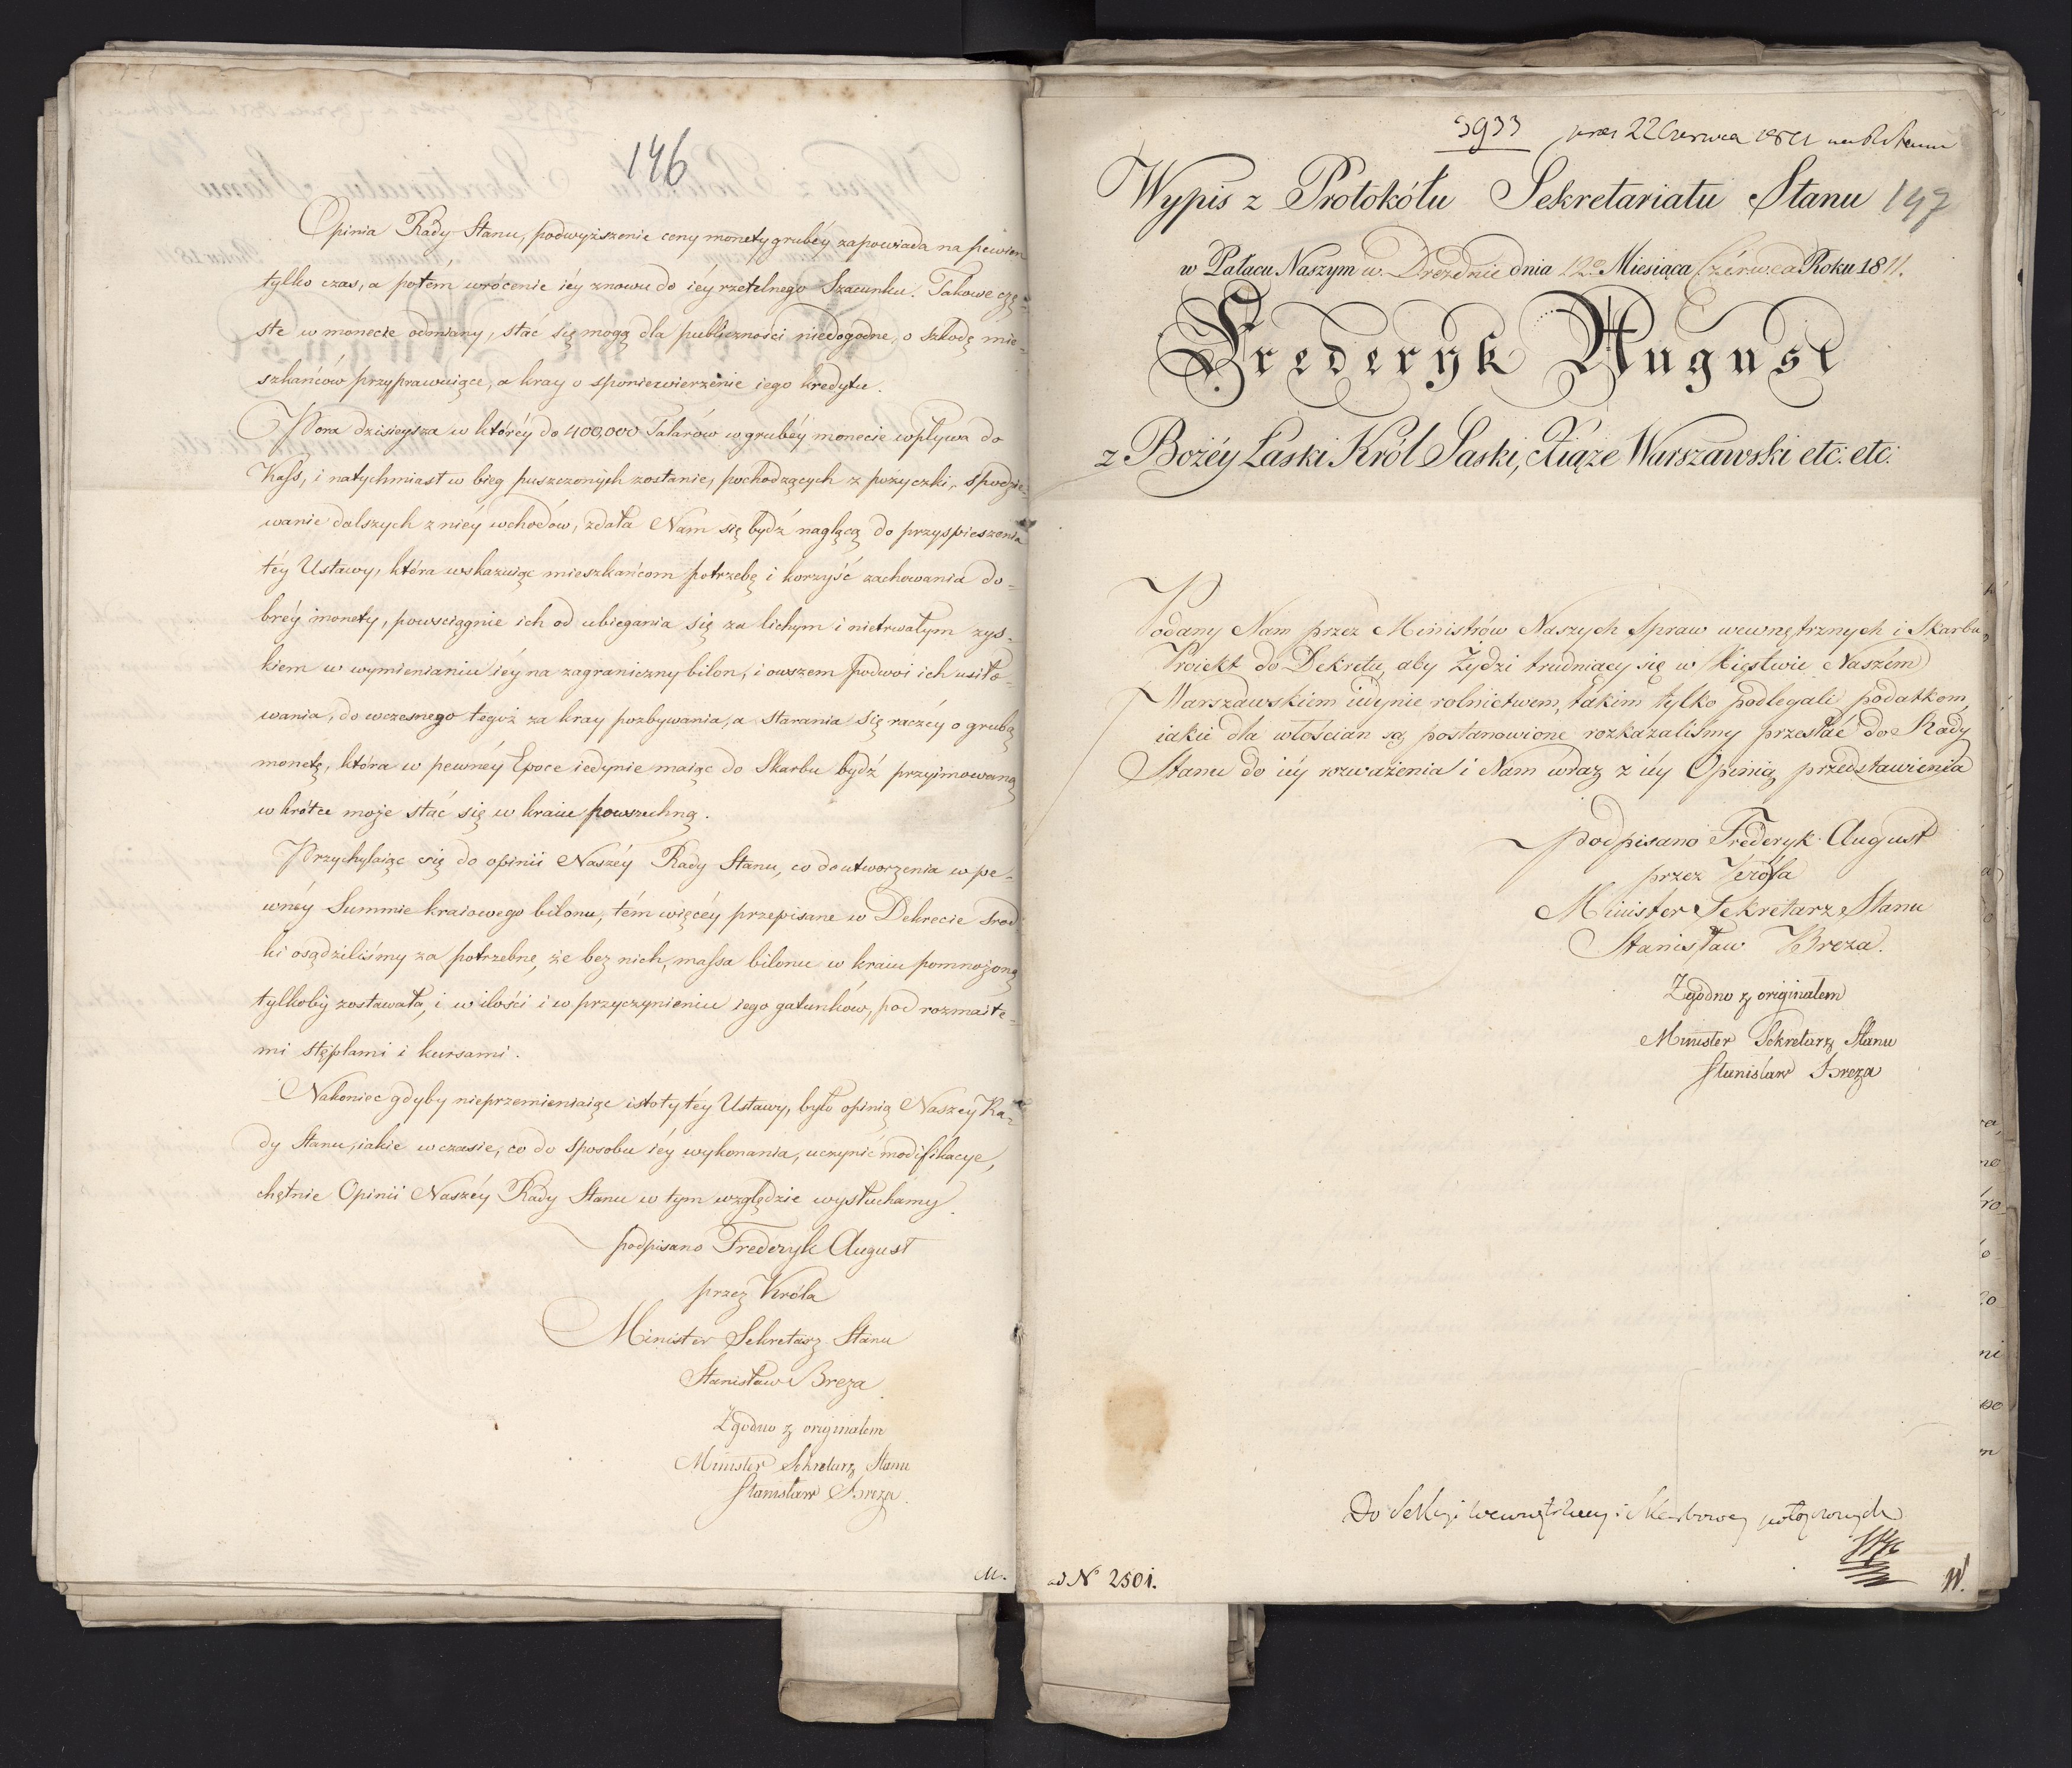 146
Opinia Rady Stanu, podwyższenie ceny monety grubéy zapowiada na pewien
tylko czas, a potém wrócenie iéy znowu do iéy rzetelnego Szacunku. Takowe czę-
ste w monecie odmiany, stać się mogą dla publiczności niedogodne, o szkodę mie-
szkańców przyprawuiące, a kray o sponiewierzenie iego kredytu.
Pora dzisieysza w któréy do 400,000 Talarów w grubéy monecie wpływa do
Kass, i natychmiast w bieg puszczonych zostanie, pochodzących z pożyczki, spodzie-
wanie dalszych z niéy wchodów, zdała Nam się bydź naglącą do przyspieszenia
téy Ustawy, która wskazuiąc mieszkańcom potrzebę i korzyść zachowania do-
bréy monety, powsciągnie ich od ubiegania się za lichym i nietrwałym zys-
kiem w wymienianiu iéy na zagraniczny bilon, i owszem podwoi ich usiło-
wania, do wczesnego tegoż za kray pozbywania, a starania się raczéy o grubą
monetę, która w pewnéy Epoce iedynie maiąc do Skarbu bydź przyimowaną
w krótce może stać się w kraiu powszechną.
Przychylaiąc się do opinii Naszéy Rady Stanu, co do utworzenia w pe-
wnéy Summie kraiowego bilonu, tém więcéy przepisane w Dekrecie srod
ki osądziliśmy za potrzebne, że bez nich, massa bilonu w kraiu pomnożoną
tylkoby zostawała, i w ilości i w przyczynieniu iego gatunków, pod rozmaite-
mi stęplami i kursami.
Nakoniec gdyby nieprzemieniaiąc istoty téy Ustawy, było opinią Naszey Ra-
dy Stanu, iakie w czasie, co do sposobu iéy wykonania, uczynić modifikacye,
chętnie Opinii Naszéy Rady Stanu w tym względzie wysłuchamy.
podpisano Frederyk August
przez Króla
Minister Sekretarz Stanu
Stanisław Breza
Zgodno z originałem
Minister Sekretarz Stanu
Stanisław Breza.
M.
3933 22 Czerwca 1811
Wypis z Protokółu Sekretariatu Stanu 147
w Pałacu Naszym w Dreznie dnia 12º Miesiąca Czérwca Roku 1811.
Frederyk August
z Bożéy Łaski Król Saski, Xiąże Warszawski etc: etc:
Podany Nam przez Ministrów Naszych Spraw wewnętrznych i Skarbu,
Proiekt do Dekretu, aby Żydzi trudniący się w Xięstwie Naszém
Warszawskiem iedynie rolnictwem, takim tylko podlegali podatkom,
iakie dla włościan są postanowione rozkazaliśmy przesłać do Rady
Stanu do iéy rozważenia i Nam wraz z iéy Opinią przedstawienia
podpisano Frederyk August
przez Króla
Minister Sekretarz Stanu
Stanisław Breza.
Zgodno z originałem
Minister Sekretarz Stanu
Stanisław Breza
Do Sekcyi wewnętrzney i Skarbowey połączonych
ad Nº 2501.
W.